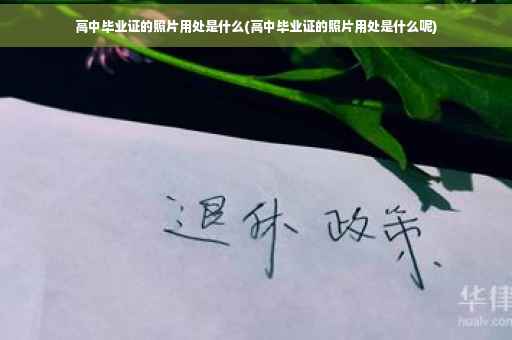 高中毕业证的照片用处是什么(高中毕业证的照片用处是什么呢)
退休 政策
华律
hualv.com